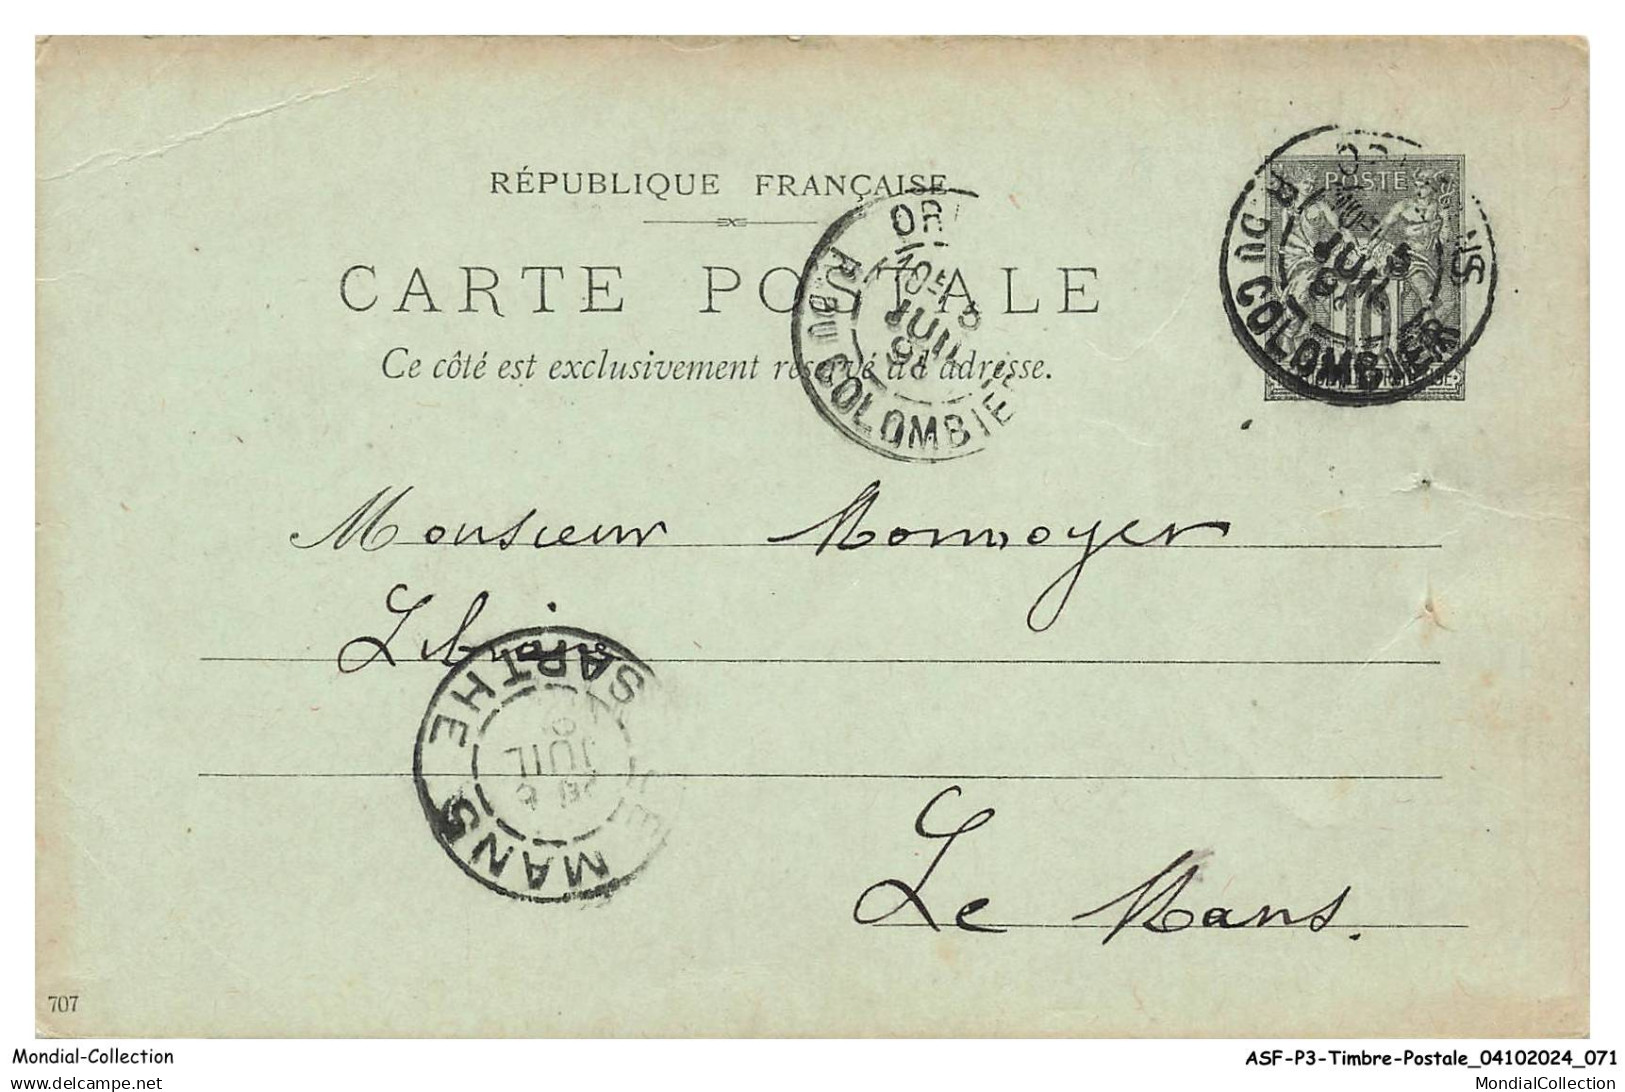 RÉPUBLIQUE FRANÇAISE
CARTE POSTALE
Ce côté est exclusivement réservé à l'adresse.
POSTE
10
R. DU COLOMBIER
JUIL
OR
10E
R. DU COLOMBIE
JUIL
Monsieur Monnoyer
SARTHE
JUIL
LE MANS
Le Mans.
707
Mondial-Collection
ASF-P3-Timbre-Postale_04102024_071
https://www.delcampe.net
MondialCollection